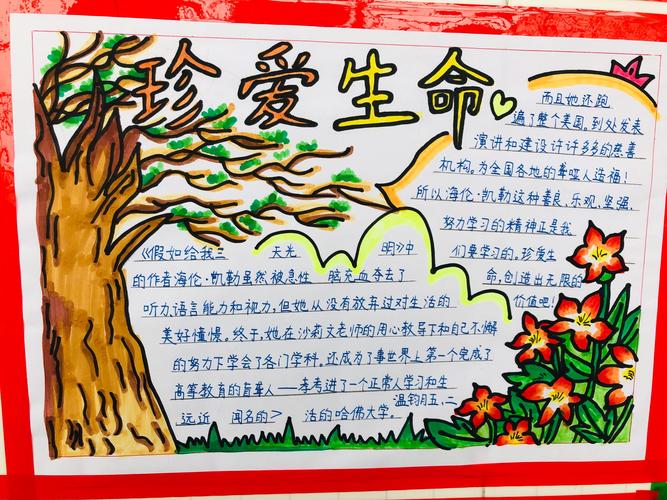 珍爱生命
《假如给我三 天光 明》中
的作者海伦·凯勒虽然被急性 脑充血夺去了
听力,语言能力和视力,但她从没有放弃过对生活的
美好憧憬。终于,她在沙莉文老师的用心教导下和自己不懈
的努力下学会了各门学科。还成为了事世界上第一个完成了
高等教育的盲聋人——李考进了一个正常人学习和生
远近 闻名的> 活的哈佛大学。
温钧月五、二
而且她还跑
遍了整个美国。到处发表
演讲和建设许许多多的慈善
机构。为全国各地的聋哑人造福!
所以海伦·凯勒这种善良、乐观、坚强、
努力学习的精神正是我
们要学习的。珍爱生
命,创造出无限的
价值吧!